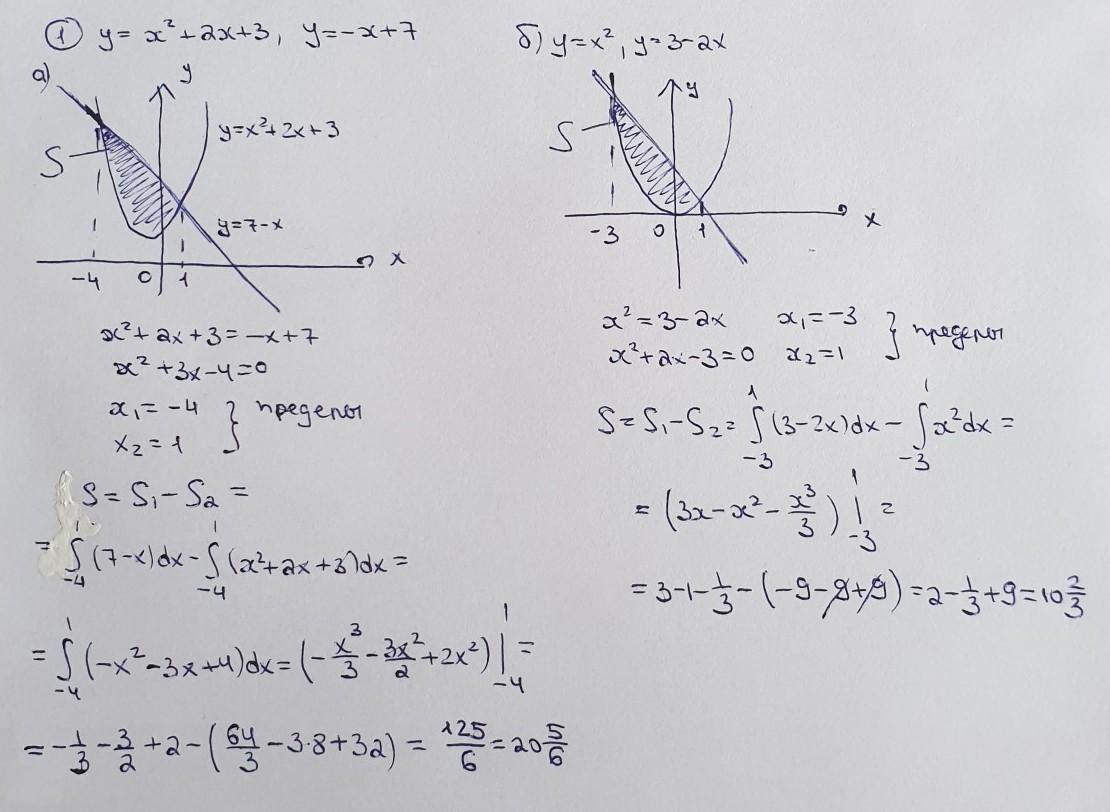 ① y = x² + 2x + 3, y = -x + 7
а)
y
y = x² + 2x + 3
S
y = 7 - x
-4 0 1 x
x² + 2x + 3 = -x + 7
x² + 3x - 4 = 0
x₁ = -4
x₂ = 1 } пределы
S = S₁ - S₂ =
= ∫₋₄¹ (7 - x)dx - ∫₋₄¹ (x² + 2x + 3)dx =
= ∫₋₄¹ (-x² - 3x + 4)dx = (-x³/3 - 3x²/2 + 2x²) |₋₄¹ =
= -1/3 - 3/2 + 2 - (64/3 - 3·8 + 32) = 125/6 = 20 5/6
б) y = x², y = 3 - 2x
y
S
-3 0 1 x
x² = 3 - 2x x₁ = -3
x² + 2x - 3 = 0 x₂ = 1 } пределы
S = S₁ - S₂ = ∫₋₃¹ (3 - 2x)dx - ∫₋₃¹ x²dx =
= (3x - x² - x³/3) |₋₃¹ =
= 3 - 1 - 1/3 - (-9 - 9 + 9) = 2 - 1/3 + 9 = 10 2/3